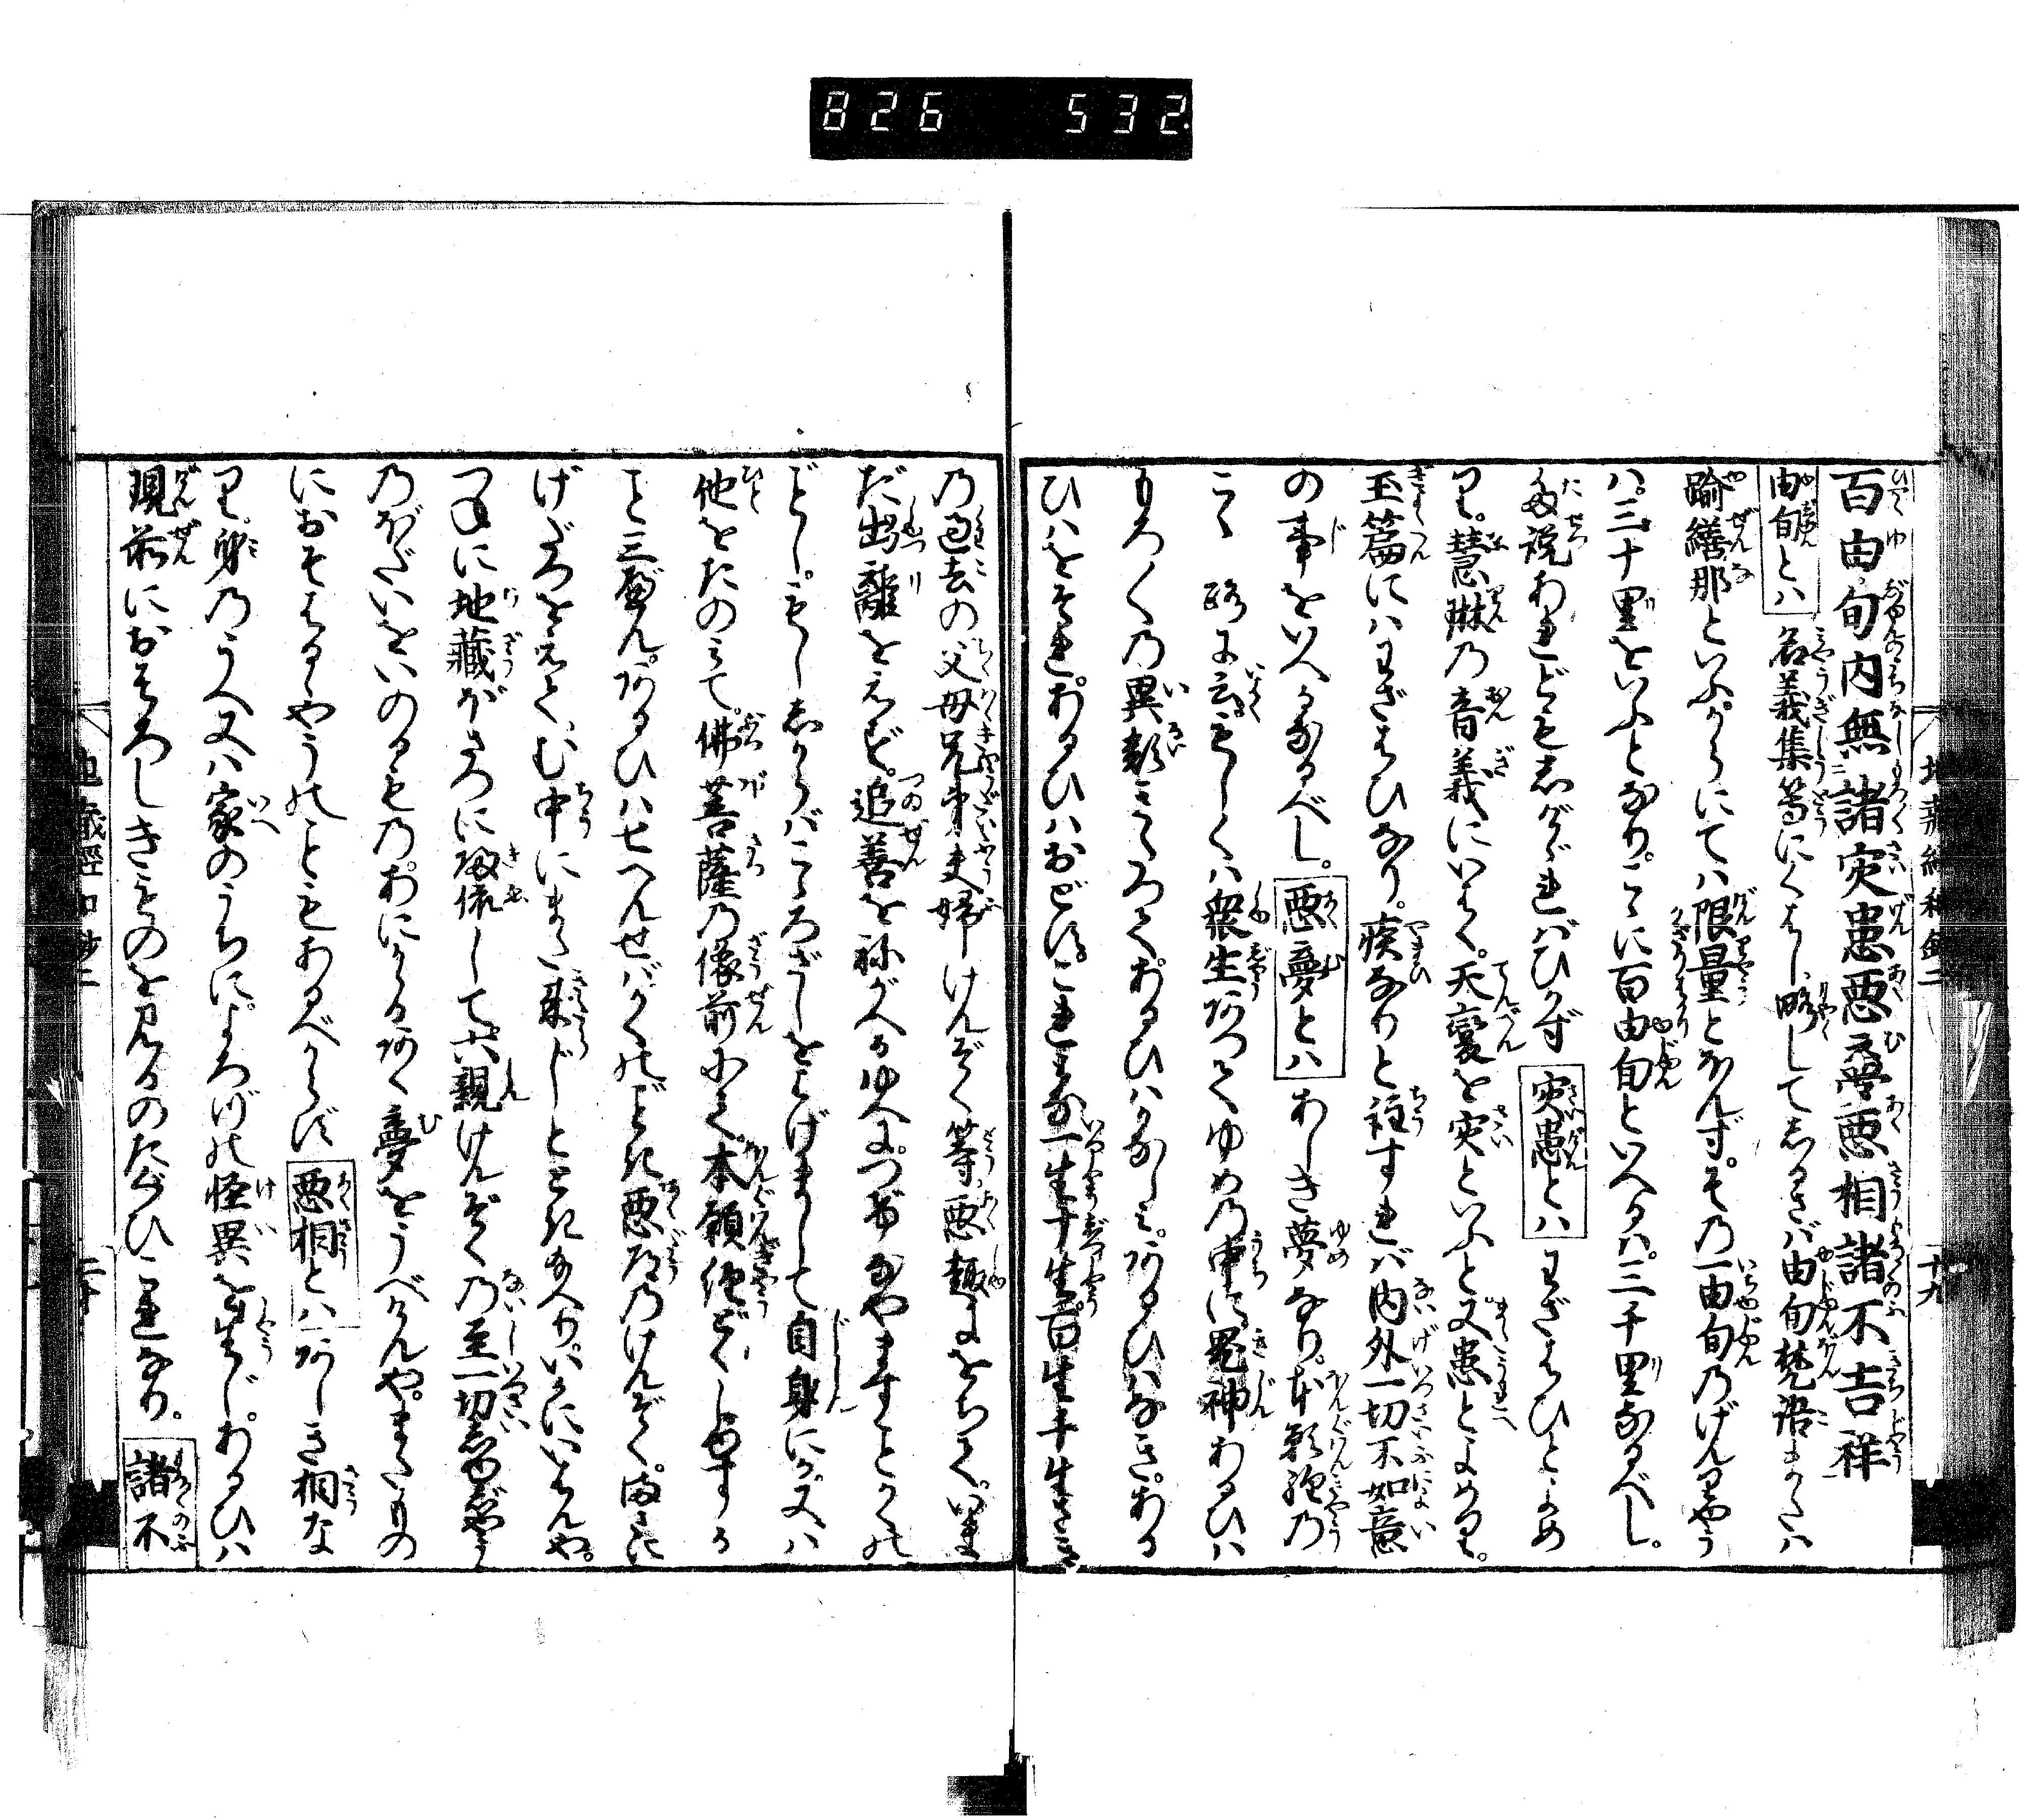 826 532
百由旬内無諸灾患悪夢悪相諸不吉祥
由旬とハ名義集等にくはし、略してしるさバ由旬梵語まさしくハ
踰繕那といふからにてハ限量とほんず。その一由旬のげんりやう
ハ。三十里をいふとなり。こゝに百由旬といへるハ。三千里なるべし。
多説あれども志げゝれバひかず 灾患とハ わざはひとよめ
り。慧琳の音義にいはく。天變を灾といふと又患とよめり。
玉篇にハわざはひなり。疾なりと註すれバ内外一切不如意
の事をいへるなるべし。 悪夢とハ あしき夢なり。本願經の
こゝろに云もしくハ衆生ありてゆめの中に鬼神あるひハ
もろ〱の異類きたりて。あるひハかなしみ。あるひハなき。ある
ひハをそれ。あるひハおどす。これみな一生十生百生千生さき
の過去の父母兄弟夫婦けんぞく等悪趣におちて。いま
だ出離をえず。追善をねがへるゆへに。つげなやますことかくの
ごとし。もししからバこゝろざしをはげまして自身にか。又ハ
他をたのみて。佛菩薩の像前にて。本願經どくじゆする
こと三べん。あるひハ七へんせバ。かくのごとき悪道のけんぞく。まさに
げだつをえて、む中にまた来らじとときたまへり。いかにいはんや。
つねに地藏ぼさつに歸依して。六親けんぞく乃至一切衆生
のぼだいをいのるもの。あにかゝるあく夢をうべけんや。またもの
におそはるゝやうのこともあるべからず 悪相とハ あしき相な
り。身のうへ又ハ家のうちに。よろづの怪異を生じ。あるひハ
現前におそろしきものを見るのたぐひこれなり。 諸不
地藏經和鈔二 十九
地藏經和鈔二 二十